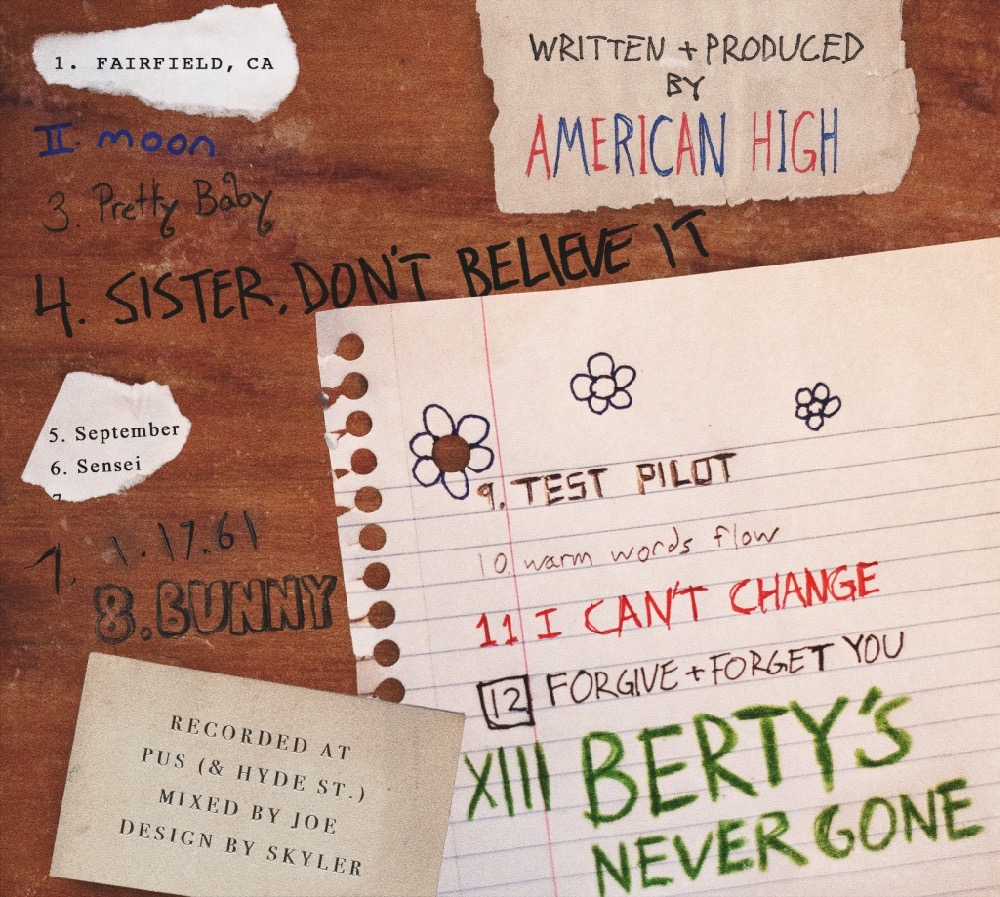 1. FAIRFIELD, CA
II. moon
3. Pretty Baby
4. SISTER, DON'T BELIEVE IT
5. September
6. Sensei
7. 1.17.61
8. BUNNY
WRITTEN + PRODUCED
BY
AMERICAN HIGH
9. TEST PILOT
10. warm words flow
11 I CAN'T CHANGE
12 FORGIVE + FORGET YOU
XIII BERTY'S
NEVER GONE
RECORDED AT
PUS (& HYDE ST.)
MIXED BY JOE
DESIGN BY SKYLER